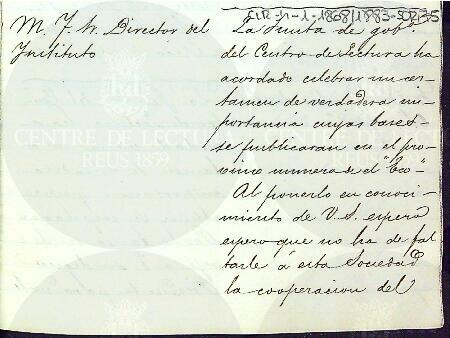 CLR-11-1-1868/1883-502/35
M. Y. Sr. Director del
Ynstituto
La Junta de gob.
del Centro de Lectura ha
acordado celebrar un cer-
tamen de verdadera im-
portancia cuyas bases
se publicaran en el pro-
csimo numero del "Eco"-
Al ponerlo en conoci-
miento de V. S. espera
espero que no ha de fal
tarle á esta Sociedad
la cooperacion del
CENTRE DE LECTURA
REUS 1859